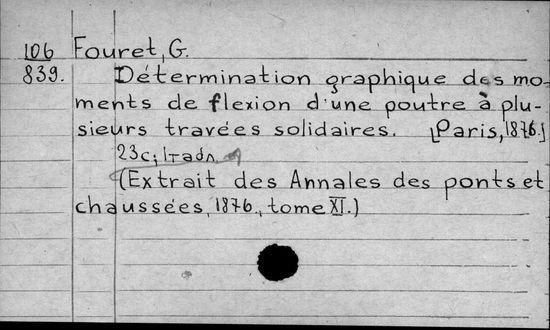 106 Fouret, G.
839. Détermination graphique des mo-
ments de flexion d'une poutre à plu-
sieurs travées solidaires. [Paris, 1876.]
23c; 1 табл.
(Extrait des Annales des ponts et
chaussées, 1876., tome XI.)